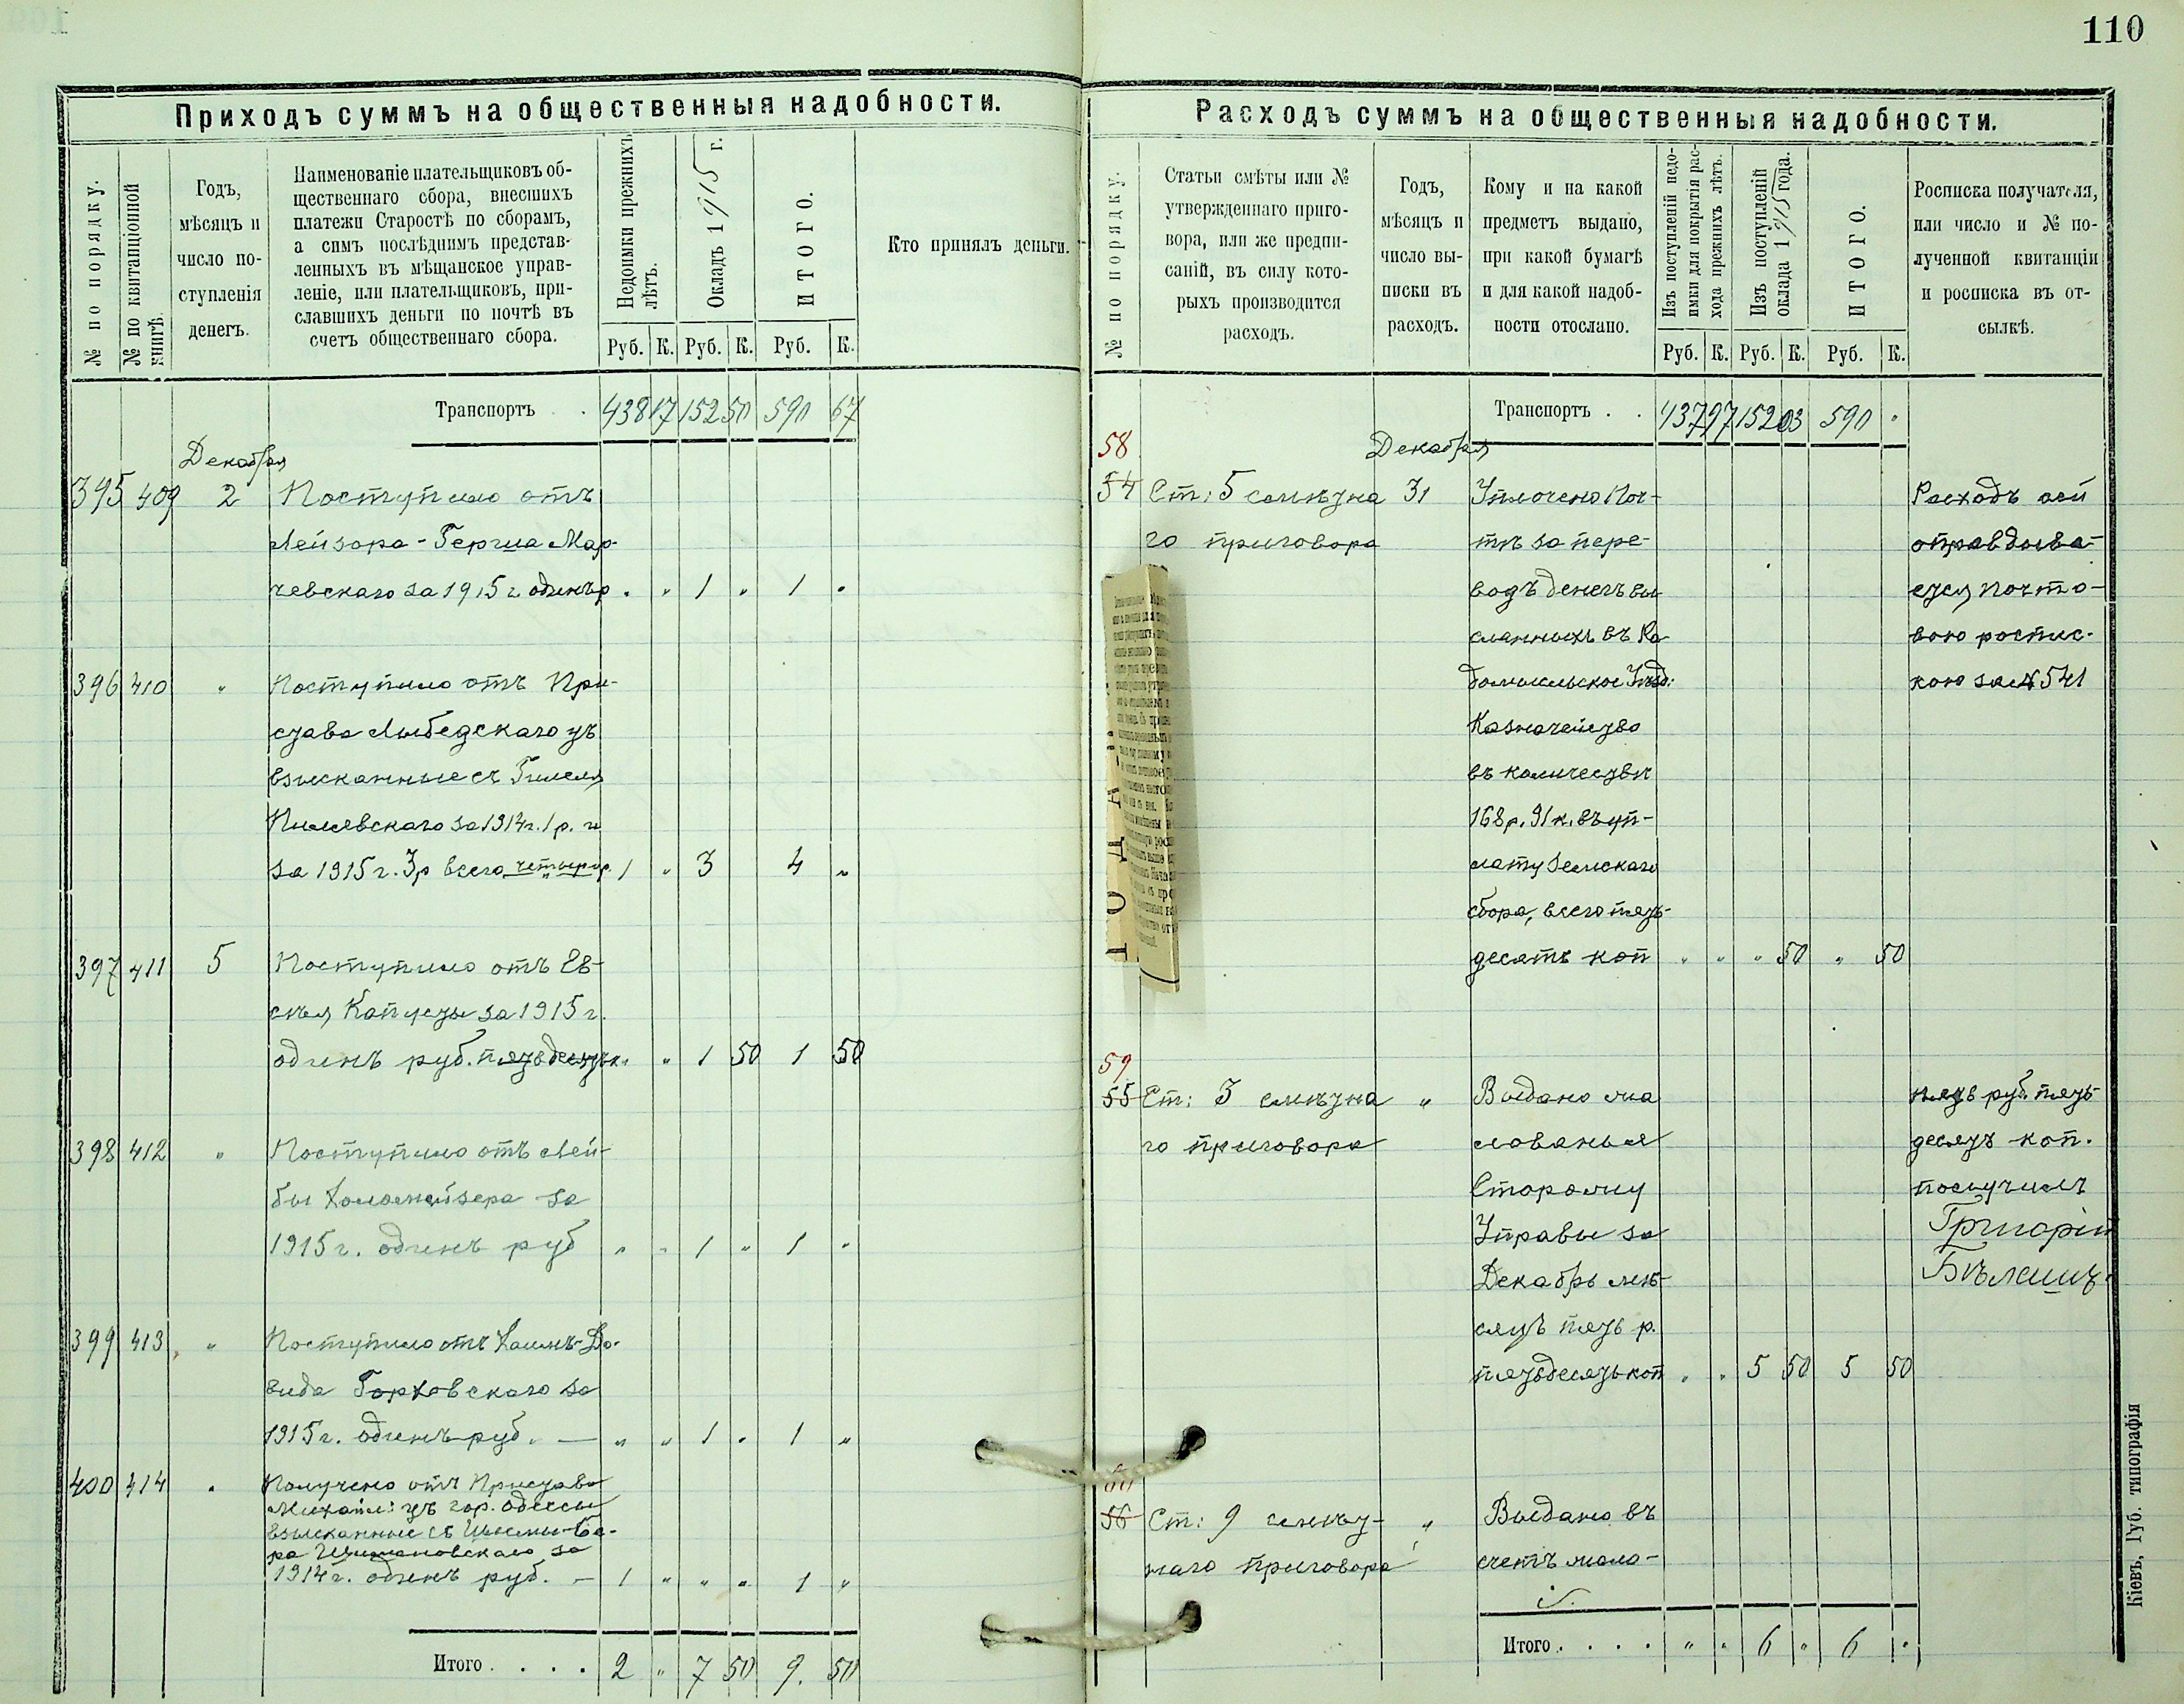 110
Приходъ суммъ на общественныя надобности.
№ по порядку.
№ по квитанціонной книгѣ.
Годъ,
мѣсяцъ и
число по-
ступленія
денегъ.
Наименованіе плательщиковъ об-
щественнаго сбора, внесшихъ
платежи Старостѣ по сборамъ,
а симъ послѣднимъ представ-
ленныхъ въ мѣщанское управ-
леніе, или плательщиковъ, при-
славшихъ деньги по почтѣ въ
счетъ общественнаго сбора.
Недоимки прежнихъ лѣтъ.
Окладъ 1915 г.
ИТОГО.
Кто принялъ деньги.
Руб. К. Руб. К. Руб. К.
Транспортъ . . 438 17 152 50 590 67
Декабря
395 409 2 Поступило отъ
Лейзора-Герша Мар-
чевскаго за 1915 г одинъ р " " 1 " 1 "
396 410 " Поступило отъ При-
става Лыбедскаго уч
взысканные съ Гимеля
за 1914 г. 1 р. и
за 1915 г. 3 р всего четыре р. 1 " 3 4 "
397 411 5 Поступило отъ Ев-
сѣя за 1915 г.
одинъ руб. пятьдесятъ к. " 1 50 1 50
398 412 " Поступило отъ Лей-
бы за
1915 г. одинъ руб " " 1 " 1 "
399 413 " Поступило отъ Хаимъ-До-
вида Горховскаго за
1915 г. одинъ руб. — " " 1 " 1 "
400 414 " Получено отъ Пристава
Михайл: уч гор. Одессы
взысканные съ
ра за
1914 г. одинъ руб. — 1 " " " 1 "
Итого . . . . 2 " 7 50 9. 50
Расходъ суммъ на общественныя надобности.
№ по порядку.
Статьи смѣты или №
утвержденнаго приго-
вора, или же предпи-
саній, въ силу кото-
рыхъ производится
расходъ.
Годъ,
мѣсяцъ и
число вы-
писки въ
расходъ.
Кому и на какой
предметъ выдано,
при какой бумагѣ
и для какой надоб-
ности отослано.
Изъ поступленій недо-
имки для покрытія рас-
хода прежнихъ лѣтъ.
Изъ поступленій
оклада 1915 года.
ИТОГО.
Росписка получателя,
или число и № по-
лученной квитанціи
и росписка въ от-
сылкѣ.
Руб. К. Руб. К. Руб. К.
Транспортъ . . 437 97 152 03 590 "
58 Декабря
54 Ст: 5 смѣтна 31 Уплочено Поч- Расходъ сей
го приговора тѣ за пере- оправдыва-
водъ денегъ вы- ется почто-
сланныхъ въ Ра- вою роспис-
домысльское Уѣзд: кою за № 541
Казначейство
въ количествѣ
168 р. 91 к. въ уп-
лату Земскаго
сбора, всего пять-
десятъ коп " " " 50 " 50
59
55 Ст: 3 смѣтна " Выдано жа пять руб. пять-
го приговора лованья десятъ коп.
Сторожу получилъ
Управы за Григорій
Декабрь мѣ-
сяцъ пять р.
пятьдесятъ коп " " 5 50 5 50
60
56 Ст: 9 смѣт- " Выдано въ
наго приговора счетъ жало-
Итого . . . . " " 6 " 6 "
Кіевъ, Губ. типографія